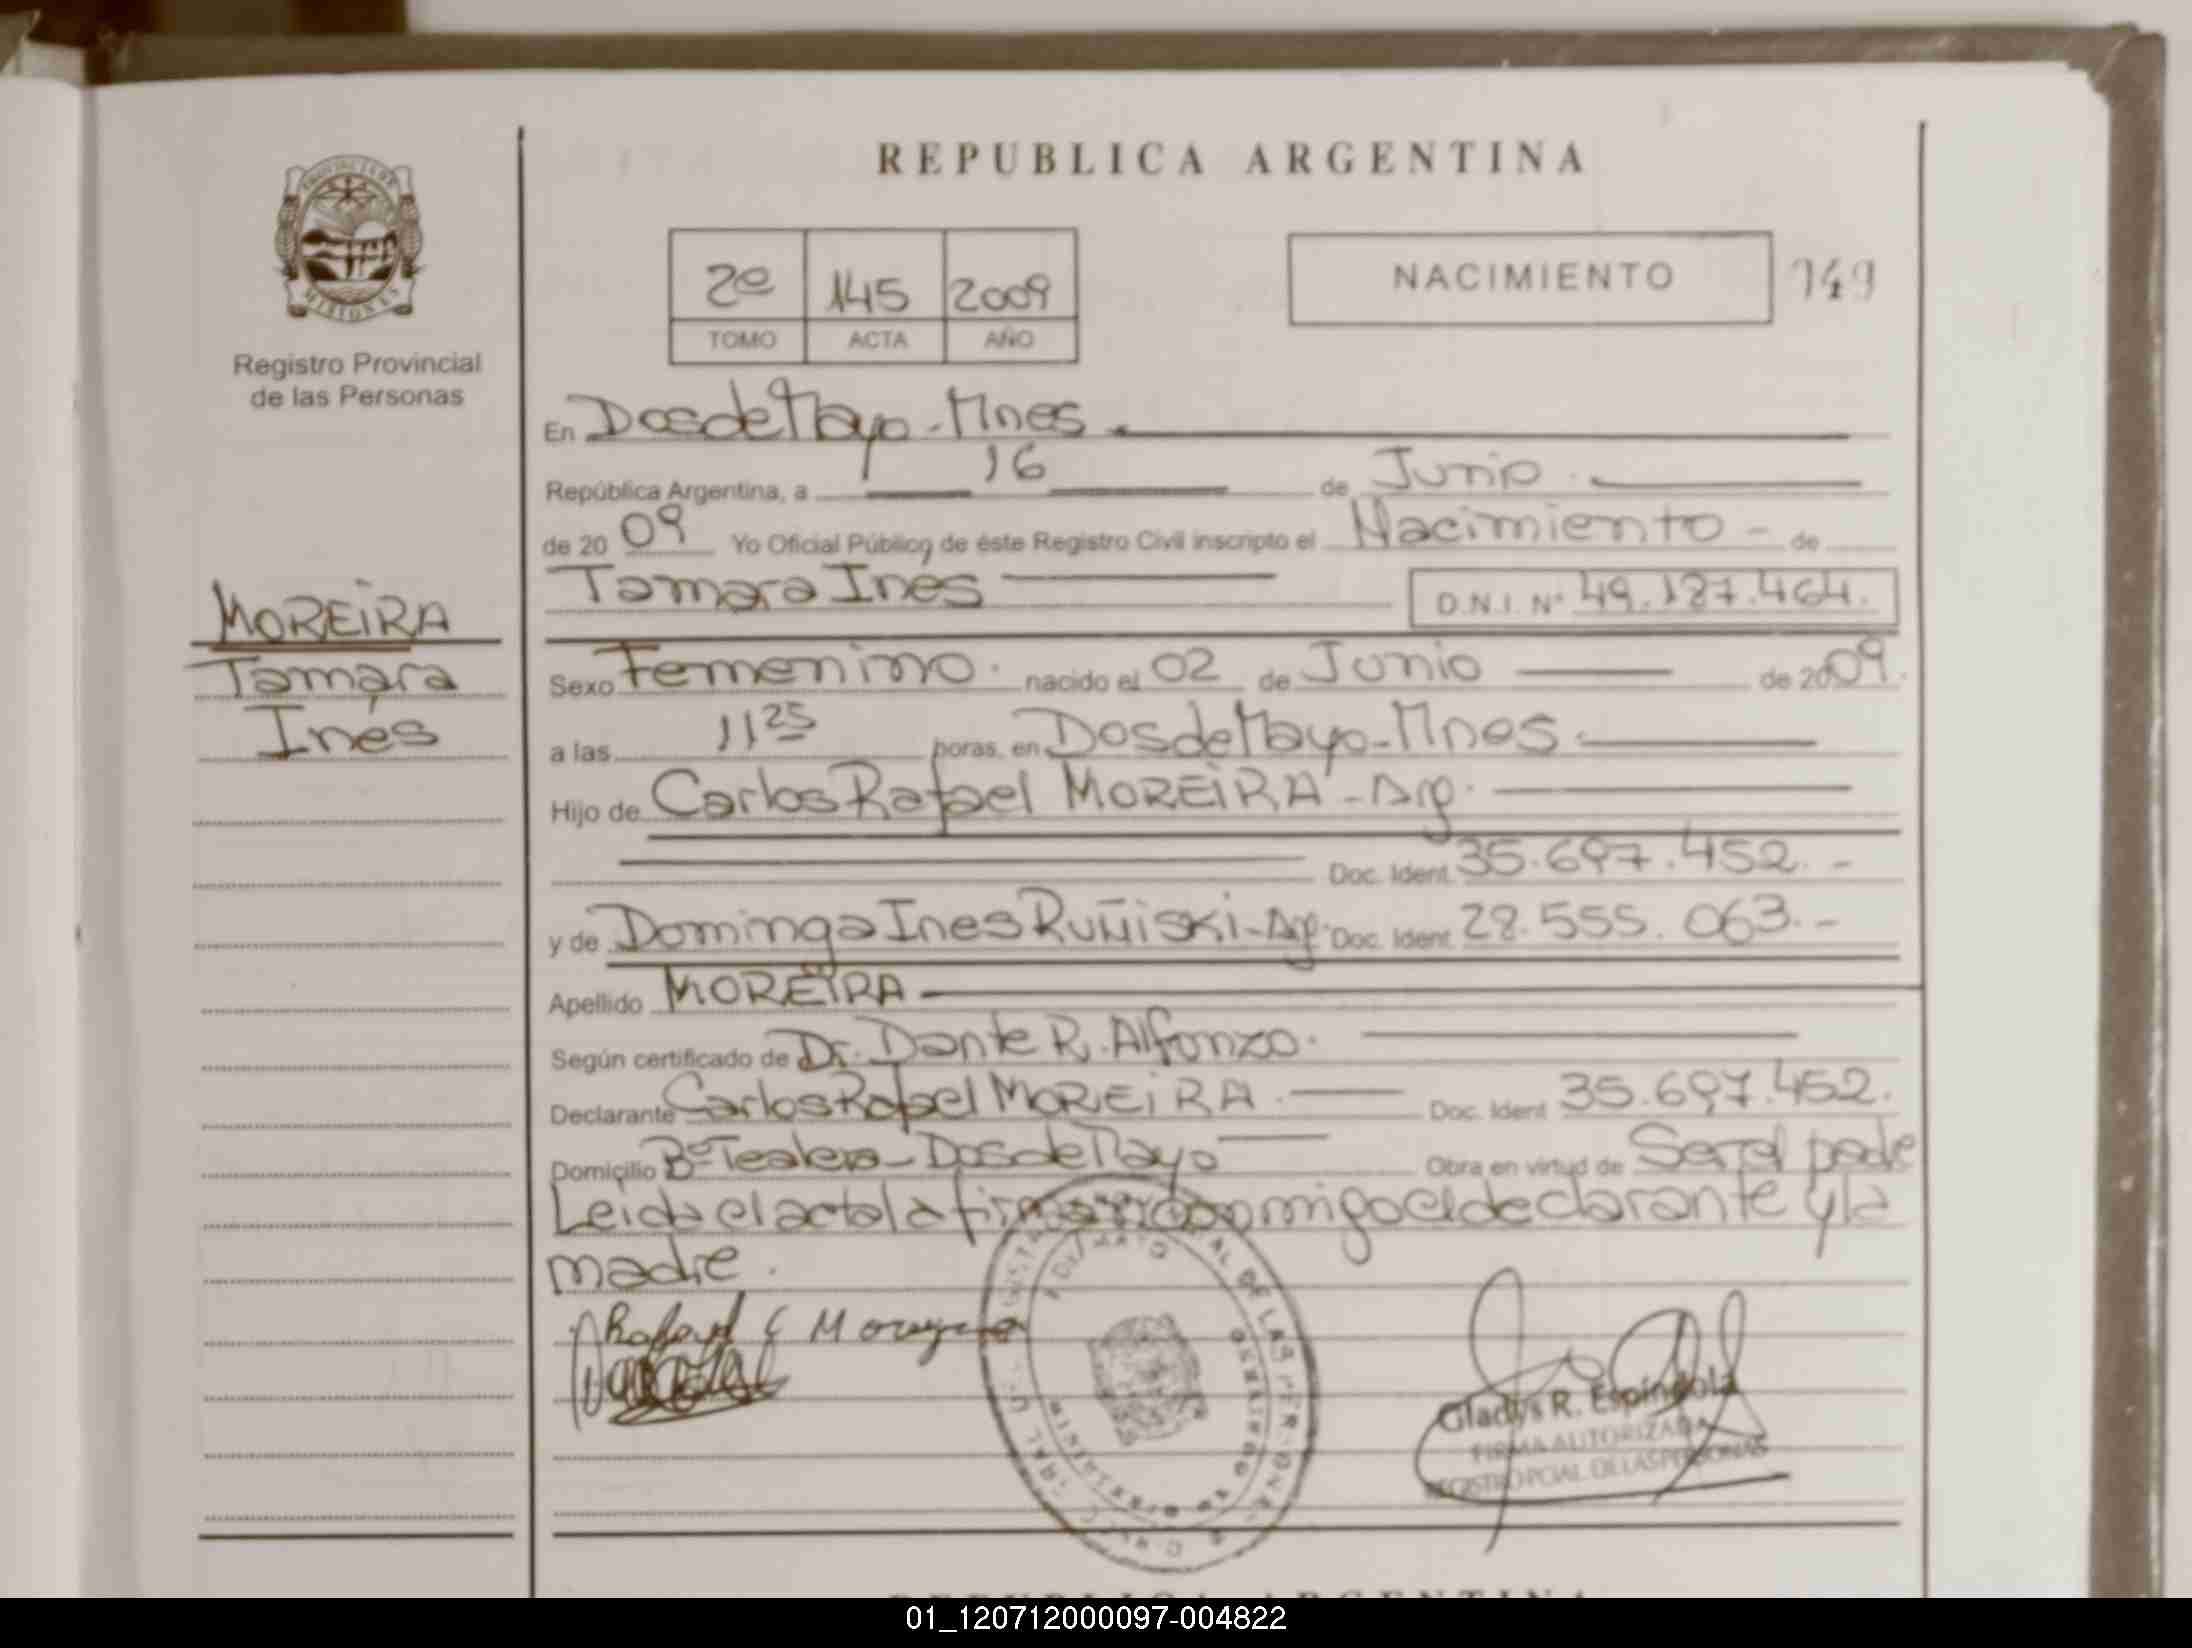 REPUBLICA ARGENTINA
2º 145 2009
TOMO ACTA AÑO
NACIMIENTO 149
Registro Provincial
de las Personas
MOREIRA
Tamara
Inés
En Dos de Mayo - Mnes
República Argentina, a 16 de Junio
de 2009 Yo Oficial Público de éste Registro Civil inscripto el Nacimiento - de
Tamara Inés D.N.I. Nº 49.187.464.
Sexo Femenino. nacido el 02 de Junio de 2009.
a las 11 25 horas, en Dos de Mayo - Mnes.
Hijo de Carlos Rafael MOREIRA - Arg.
Doc. Ident. 35.697.452. -
y de Dominga Ines RUÑISKI - Arg. Doc. Ident. 28.555.063. -
Apellido MOREIRA
Según certificado de Dr. Dante R. Alfonzo.
Declarante Carlos Rafael MOREIRA. Doc. Ident 35.697.452.
Domicilio Bº Tealera - Dos de Mayo Obra en virtud de Ser el padre
Leida el acta la firman conmigo el declarante y la
madre.
Gladys R. Espíndola
FIRMA AUTORIZADA
REGISTRO PCIAL. DE LAS PERSONAS
REPUBLICA ARGENTINA
01_120712000097-004822